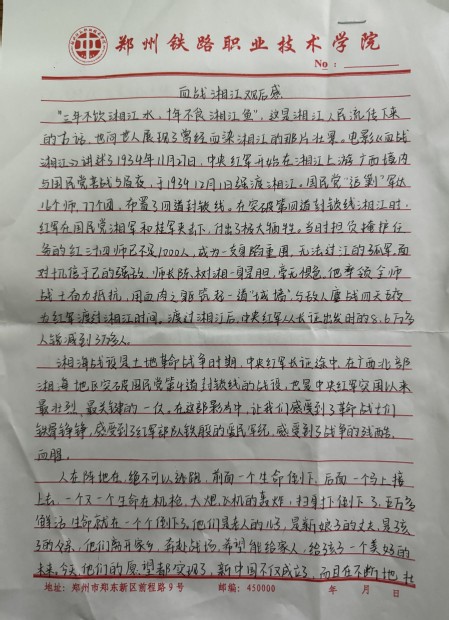 郑州铁路职业技术学院
No:
血战湘江观后感
"三年不饮湘江水,十年不食湘江鱼",这是湘江人民流传下来
的古话,也向世人展现了曾经血染湘江的那片壮景。电影《血战
湘江》讲述了1934年11月27日,中央红军开始在湘江上游广西境内
与国民党苦战5昼夜,于1934年12月1日强渡湘江。国民党"追剿"军队
16个师,77个团,布置了四道封锁线。在突破第四道封锁线湘江时,
红军在国民党湘军和桂军夹击下,付出了极大牺牲。当时担负掩护任
务的红三十四师已不足1000人,成为一支身陷重围,无法过江的孤军,面
对十几倍于己的强敌,师长陈树湘一身是胆,毫无惧色,他率领全师
战士奋力抵抗,用血肉之躯筑起一道"城墙",与敌人鏖战四天五夜
为红军渡过湘江时间。渡过湘江后,中央红军从长征出发时的8.6万多
人锐减到3万多人。
湘江战役是土地革命战争时期,中央红军长征途中,在广西北部
湘江地区突破国民党第4道封锁线的战役,也是中央红军突围以来
最壮烈、最关键的一仗。在这部影片中,让我们感受到了革命战士们
铁骨铮铮,感受到了红军部队铁服的军民军纪,感受到了战争的残酷、
血腥。
人在阵地在,绝不可以逃跑,前面一个生命倒下,后面一个马上接
上去,一个又一个生命在机枪、大炮、飞机的轰炸,扫射下倒下了,五万多
鲜活生命就在一个个倒下了。他们是老人的儿子,是新娘子的丈夫,是孩
子的父亲,他们离开家乡,奔赴战场,希望能给家人,给孩子一个美好的
未来,今天,他们的愿望都实现了,新中国不仅成立了,而且在不断地壮
地址:郑州市郑东新区前程路9号 邮编:450000 年 月 日